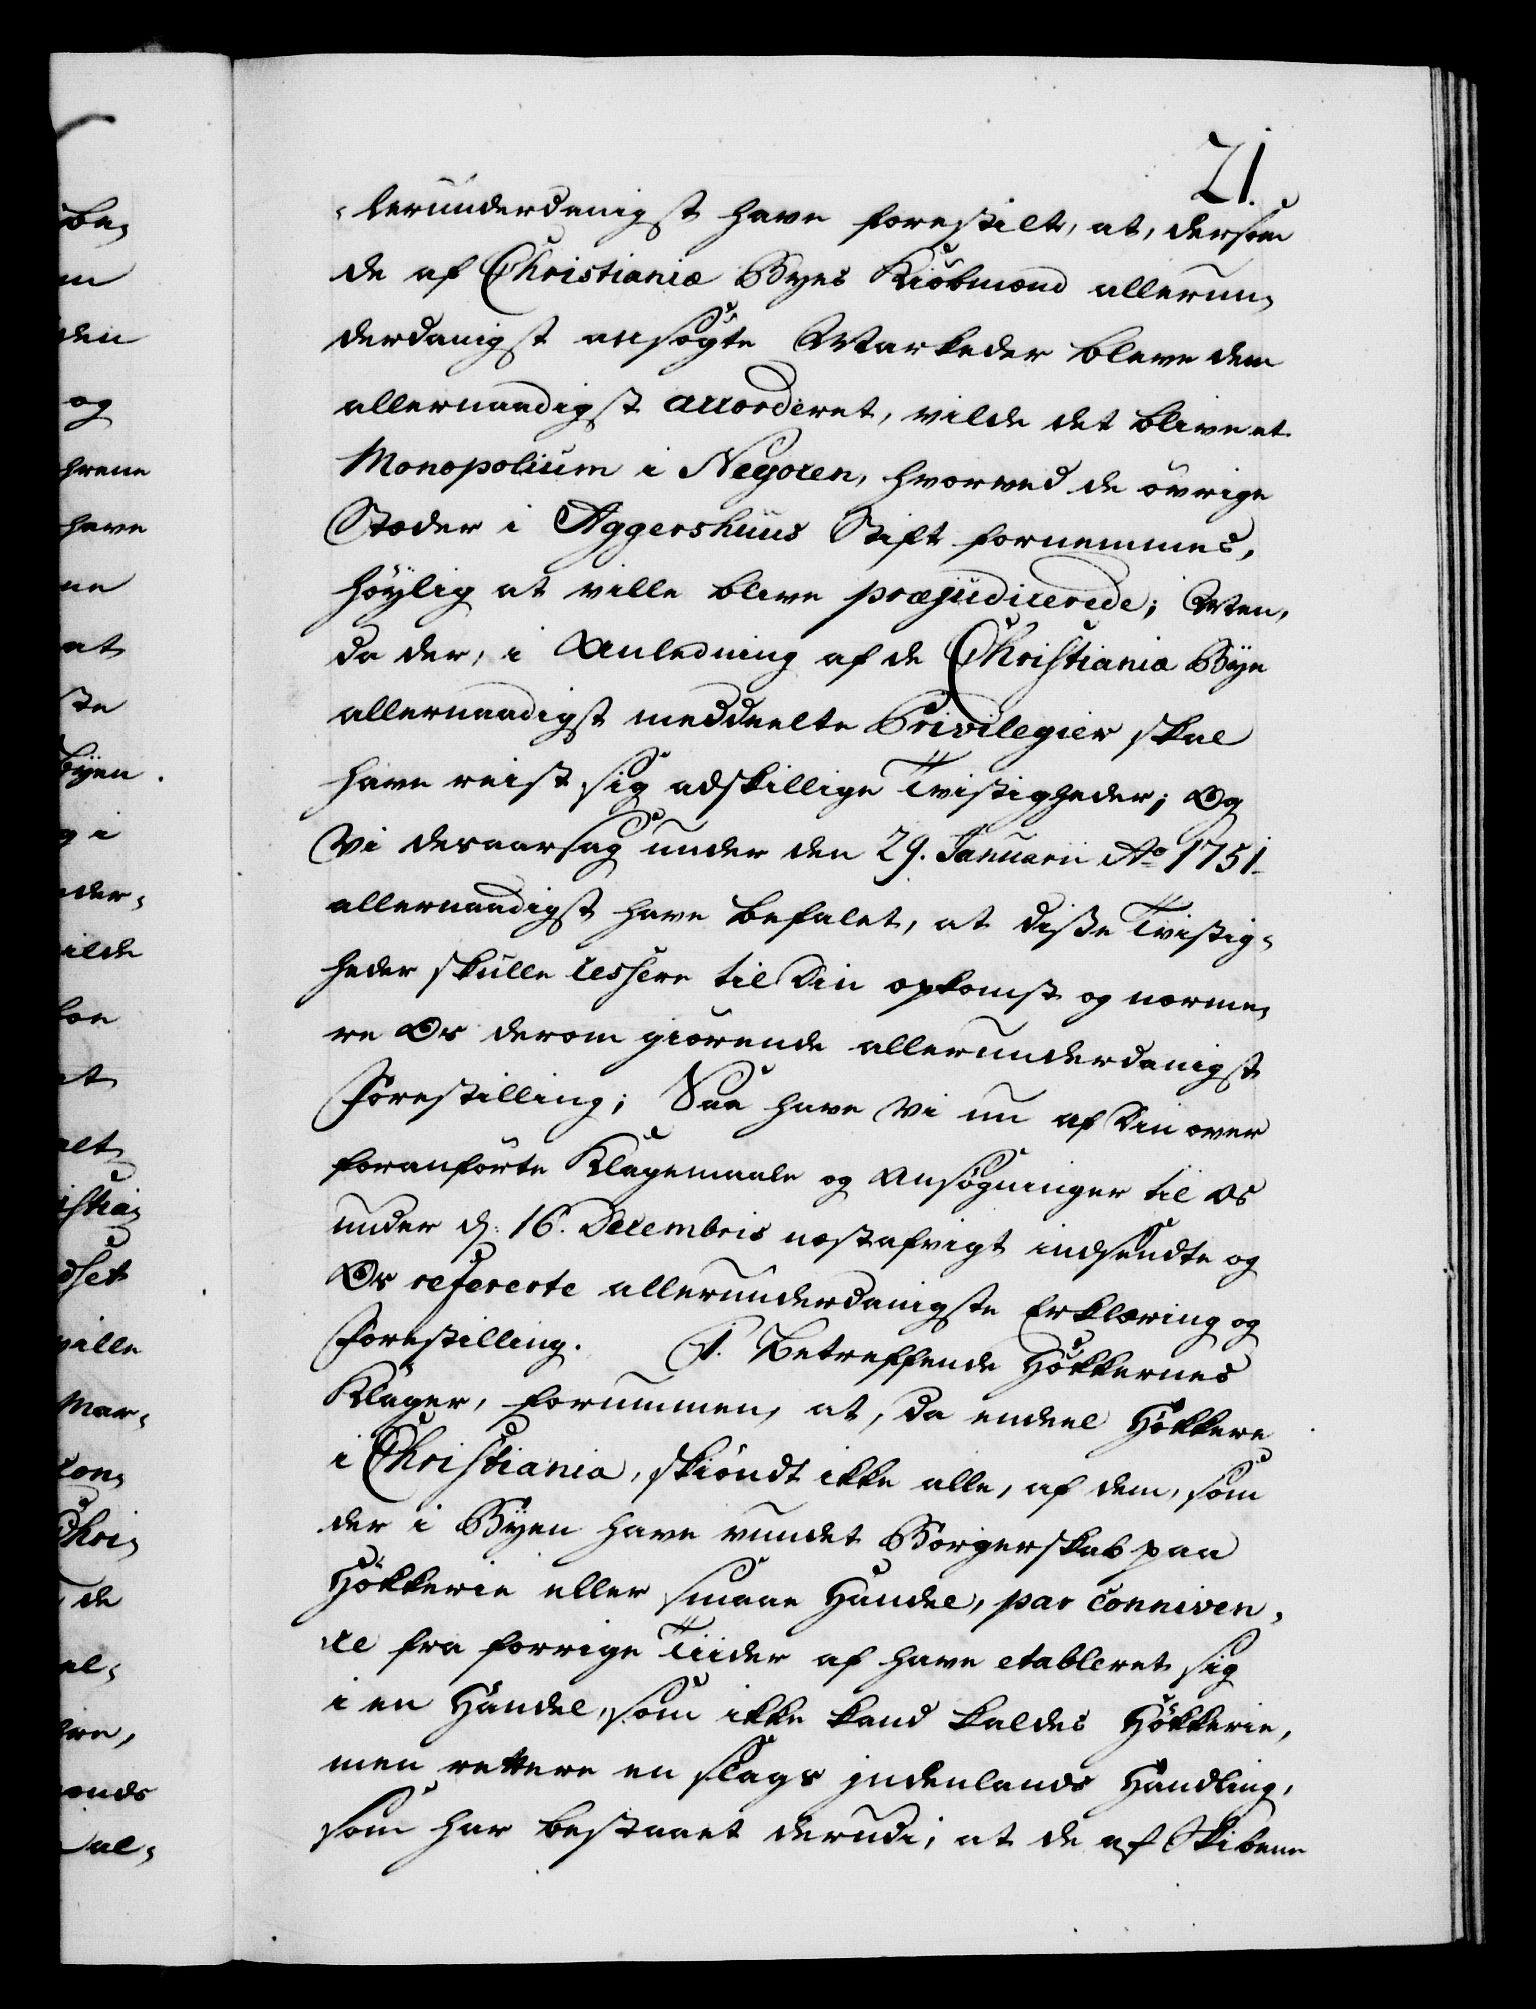 21.
-lerunderdanigst have forestilt, at, dersom
de af Christianiæ Byes Kiøbmænd allerun-
derdanigst ansøgte Markeder bleve dem
allernaadigst accorderet, vilde det blive et
Monopolium i Negocen, hvorved de øvrige
Stæder i Aggershuus Stift fornemmes,
høylig at ville blive præjudicerede; Men,
da der, i Anledning af de Christiania Bye
allernaadigst meddeelte Privilegier skal
have reist sig adskillige Tvistigheder; Og
Vi desaarsag under den 29. Januarii Ao 1751.
allernaadigst have befalet, at disse Tvistig-
heder skulle cessere til Din opkomst og nærme-
re Os derom giørende allerunderdanigst
Forestilling; Saa have Vi nu af Din over
foranførte Klagemaale og Ansøgninger til Os
under d: 16. Decembris næstafvigt indsendte og
Os refererte allerunderdanigste Erklæring og
Forestilling. 1. Betreffende Høkkernes
Klager, fornummen, at, da endeel Høkkere
i Christiania, skiøndt ikke alle, af dem, som
der i Byen have vundet Borgerskab paa
Høkkerie eller smaae Handel, par conniven-
ce fra forrige Tiider af have etableret sig
i en Handel, som ikke kand kaldes Høkkerie,
men rettere en slags indenlands Handling,
som har bestaaet derudi, at de af Skibene
be-
den
og
have
ne
at
ste
Byen.
g i
der-
vilde
at
alt
istia-
dset
ville
Mar-
con-
Chri-
de
el-
ends
al-